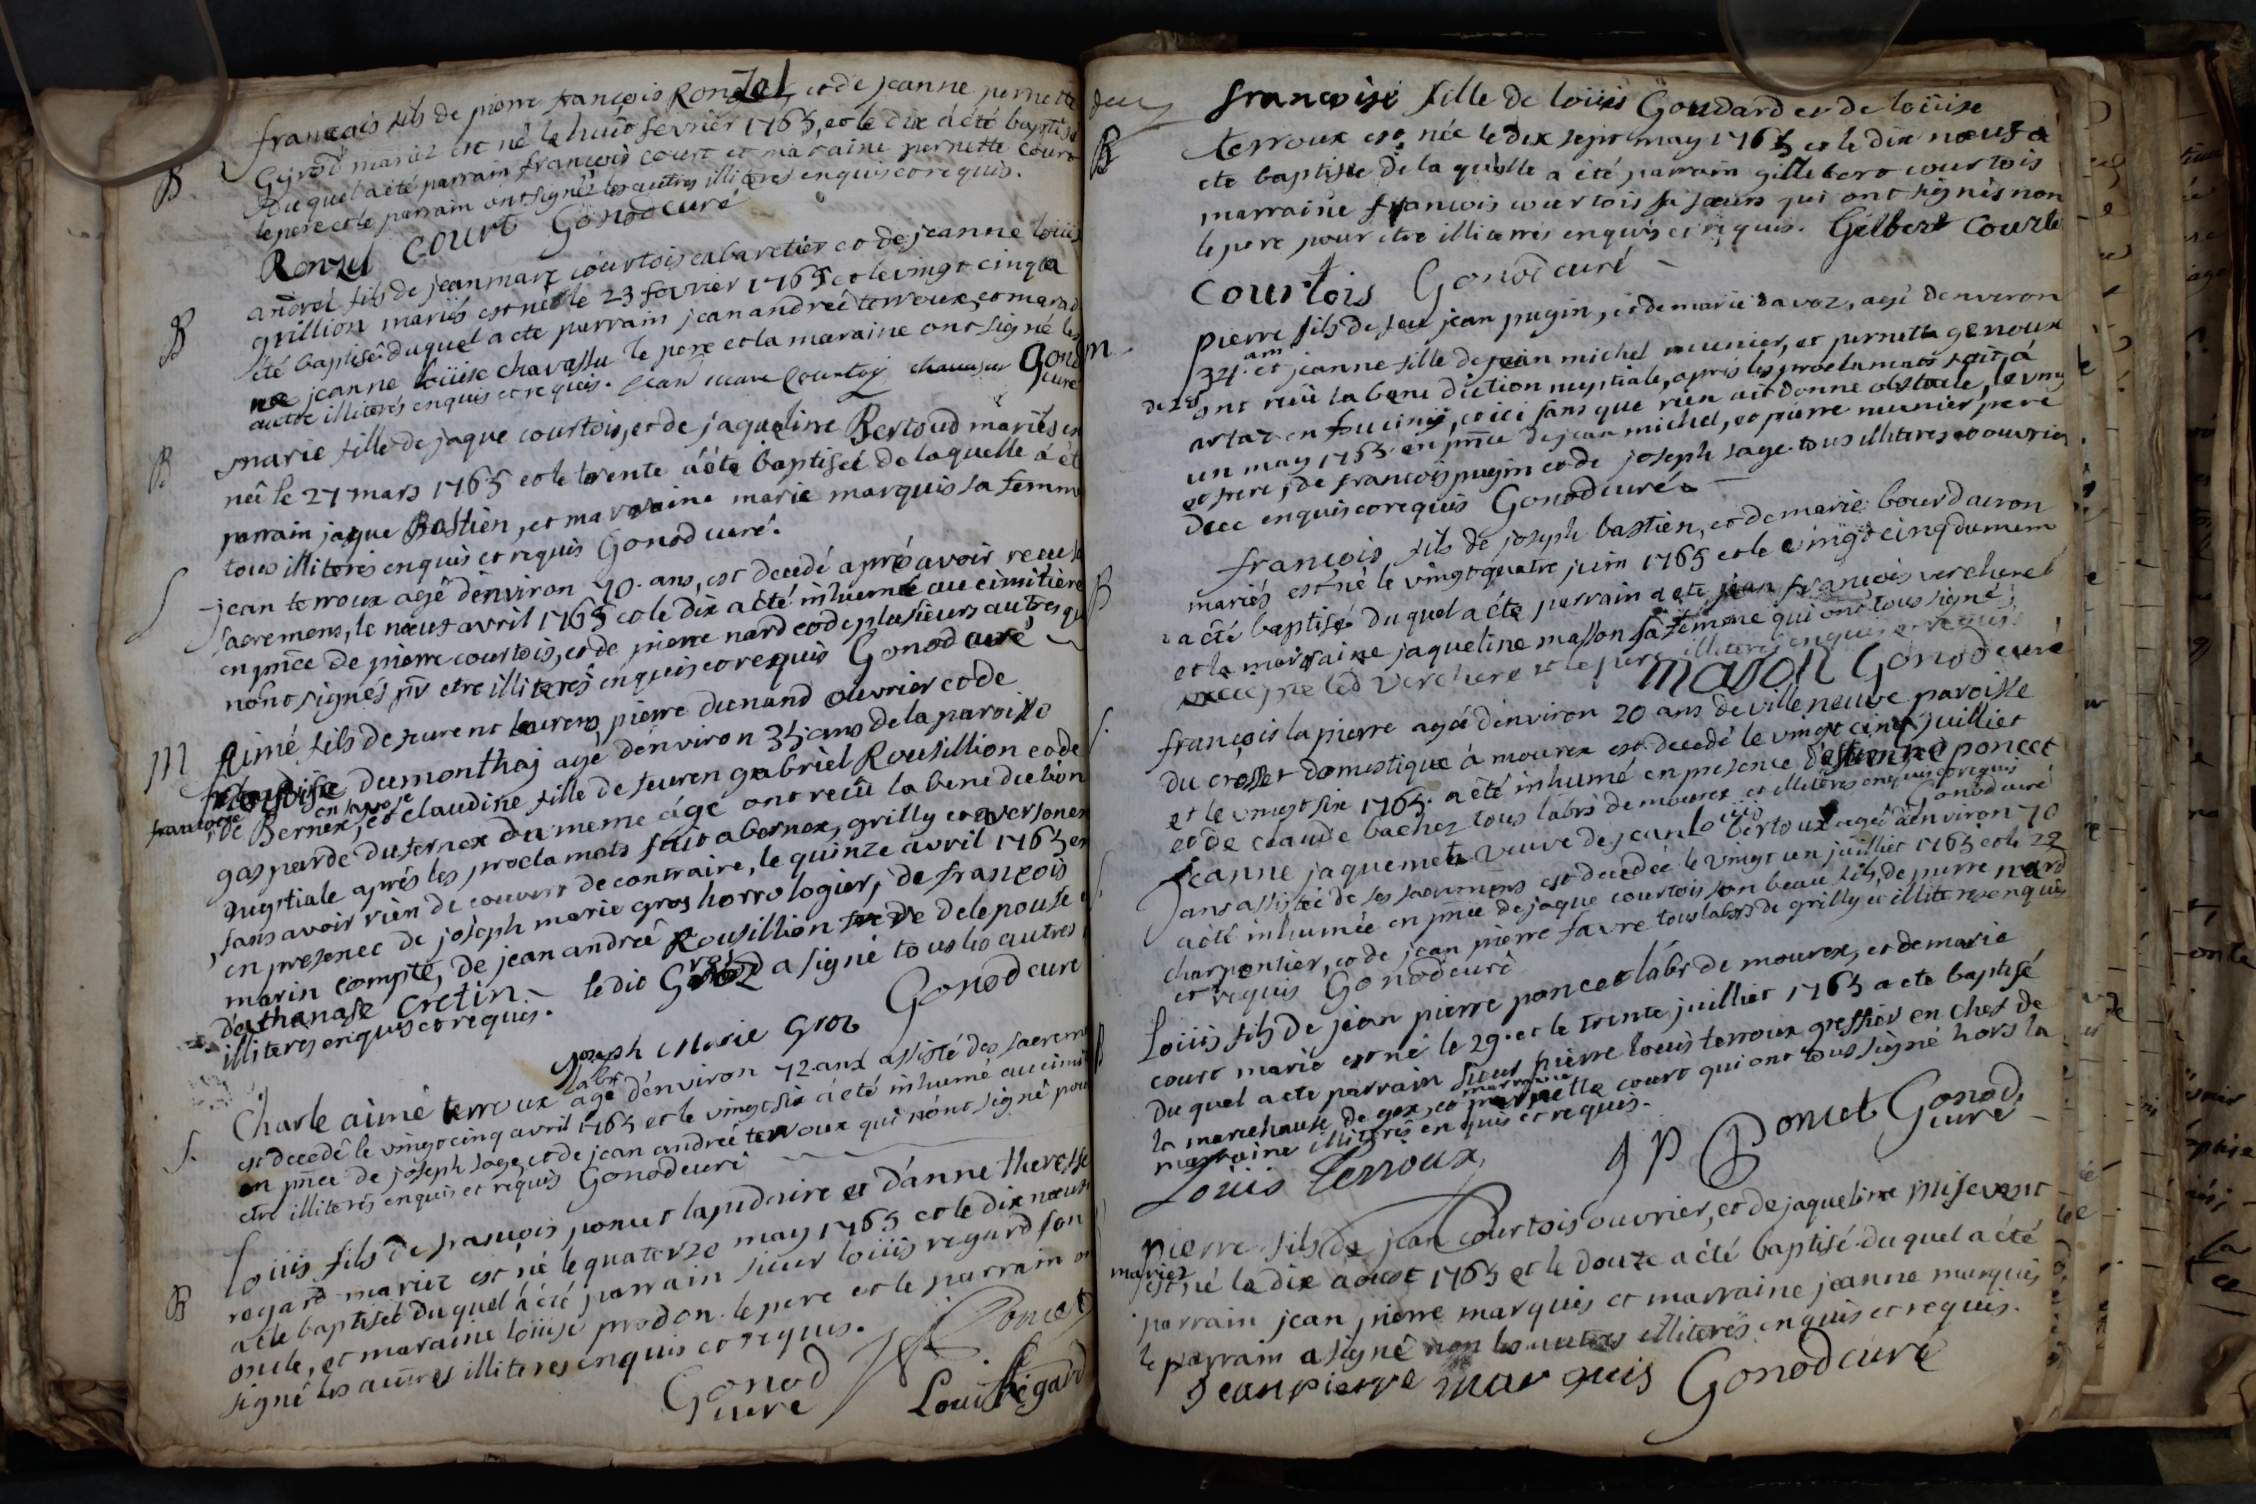 francois fils de pierre françois Ronzel, et de jeanne pernette
B
Gyrod mariéz est né le huit fevrier 1765, et le dix a été baptisé
Du quel a été parrain françois court et maraine pernette court
le pere et le parrain ont signéz les autres illiteres enquis et requis.
Ronzel court Gonod curé
B
andréé fils de jean marc courtois cabaretier et de jeanne loüise
grillion mariés est né le 23 fevrier 1765 et le vingt cinq a
été baptisé duquel a ete parrain jean andreé terroux, et mara
ne jeanne loüise chavassu le pere et la maraine ont signé les
autre illiterés enquis et requis. Jean marc Courtoy Gonod
curé
B
marie fille de jaque courtois, et de jaqueline Bertoud mariés est
neé le 27 mars 1765 et le trente a éte baptiseé de laquelle á été
parrain jaque Bastien, et maraine marie marquis sa femme
tous illiterés enquis et requis Gonod curé.
S
jean terroux agé d'environ 70 ans, est decedé aprés avoir receu les
sacremens, le nœuf avril 1765 et le dix a été inhumé au cimitière
en pnce de pierre courtois, et de pierre nard et de plusieurs autres qui
nont signés pr etre illiterés enquis et requis Gonod curé
M
Aimé fils de laurens pierre dunand ouvrier et de
dumonthay agé denviron 35 ans de la paroisse
en savoie
de Bernex, et claudine fille de feu gabriel Rousillion et de
gasparde dufernex du meme áge ont reçû la benediction
nuptiale aprés les proclamats fait a bernex, grilly et a versonex
sans avoir rien decouvert de contraire, le quinze avril 1765 en
presence de joseph marie gros horrologier, de françois
marin compte, de jean andreé Rousillion de lepouse
d'athanase cretin. le dit Groz a signé tous les autres
illiteres enquis et requis. Gonod curé
Joseph Marie Groz
S.
labr
Charle aimé terroux agé d'environ 72 ans assisté des sacremens
est decedé le vingt cinq avril 1765 et le vingt six a été inhumé au cimi
en pnce de joseph sage, et de jean andreé terroux qui nont signé pour
etre illiterés enquis et requis Gonod curé
B
Loüis fils de françois poncet lapidaire et d'anne theresse
regard mariez est né le quatorze may 1765 et le dix nœuf
a ete baptisé duquel á été parrain sieur loüis regard son
oncle, et maraine loüise prodon. le pere et le parrain ont
signé les autres illiteres enquis et requis.
Poncet
Gonod
curé
Louis Régard
B
francoise fille de loüis Goudard et de loüise
terroux est née le dix sept may 1765 et le dix nœuf á
ete baptisée de la quelle a été parrain gillibert courtois
marraine francois courtois sa sœur qui ont signés non
le pere pour etre illiterés enquis et requis. Gilbert Courtois
Courtois Gonod curé
m
pierre fils de feu jean pugin, et de marie davoz, agé denviron
34 ans et jeanne fille de jean michel munier, et pernette genoux
de 28 ont reçû la bene diction nuptiale, aprés les proclamats fait, á
artaz en foucinÿ, et ici sans que rien ait donné obstacle, le vingt
un may 1765 en pnce de jean michel, et pierre munier pere
et frere, de francois pugin et de joseph sage. tous illiteres et ouvrier
enquis et requis Gonod curé
B
francois fils de joseph bastien, et de marie bourdairon
mariés est né le vingt quatre juin 1765 et le vingt cinq du mem
a été baptisé du quel a éte parrain jean francois verchere
et la marraine jaqueline masson sa femme qui ont tous signé
excepté led Verchere et le pere illiterés enquis et requis.
mason Gonod curé
S.
francois la pierre agé d'environ 20 ans de ville neuve paroisse
du crosset domestique á mourex est decedé le vingt cinq juilliet
et le vingt six 1765. a été inhumé en presence d'estienne poncet
et de claude bachez tous labrs de mourex et illiteres enquis et requis
Gonod curé
S.
Jeanne jaquemet veuve de jean loüis bertoux agée d'environ 70
ans assistée de ses sacremens est decedée le vingt un juilliet 1765 et le 22
a été inhumée en pnce de jaque courtois son beau fils, de pierre nard
charpentier, et de jean pierre favre tous labrs de grilly et illiteres enquis
et requis Gonod curé
B
Loüis fils de jean pierre poncet labr de mourex, et de marie
court marié est né le 29 et le trente juilliet 1765 a ete baptisé
du quel a ete parrain sieur pierre louis terroux greffier en chef de
la marechausé de gex, et marraine pernette court qui ont tous signé hors la
marraine illiterés enquis et requis.
Louis Terroux, J P Poncet Gonod,
curé
pierre fils de jean Courtois ouvrier, et de jaqueline misevant
mariez
est né le dix aoust 1765 et le douze a été baptisé duquel a été
parrain jean pierre marquis et marraine jeanne marquis
le parrain a signé non les autres illiterés enquis et requis.
Jean pierre marquis Gonod curé